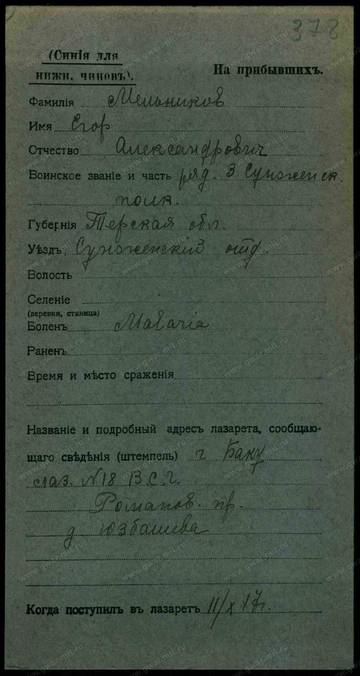 378
(Синія для
нижн. чиновъ).
На прибывшихъ.
Фамилія Мельников
Имя Егор
Отчество Александрович
Воинское званіе и часть ряд. 3 Сунженск.
полк.
Губернія Терская обл.
Уѣздъ Сунженскій отд.
Волость
Селеніе
(деревня, станица)
Боленъ Malaria
Раненъ
Время и мѣсто сраженія
Названіе и подробный адресъ лазарета, сообщаю-
щаго свѣдѣнія (штемпель) г. Баку
лаз. N 18 В.С.Г.
Романов. пр.
д. Юзбашева
Когда поступилъ въ лазаретъ 11/X 17г.